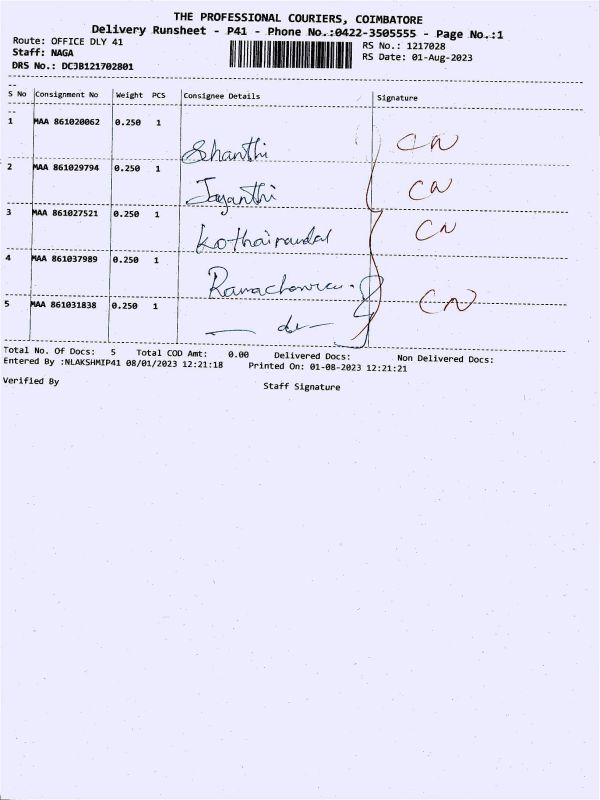 THE PROFESSIONAL COURIERS, COIMBATORE
Delivery Runsheet - P41 - Phone No.:0422-3505555 - Page No.:1
Route: OFFICE DLY 41 RS No.: 1217028
Staff: NAGA RS Date: 01-Aug-2023
DRS No.: DCJB121702801
S No Consignment No Weight PCS Consignee Details Signature
1 MAA 861020062 0.250 1
Shanthi CN
2 MAA 861029794 0.250 1
Jayanthi CN
3 MAA 861027521 0.250 1
CN
4 MAA 861037989 0.250 1
5 MAA 861031838 0.250 1 CN
— do —
Total No. Of Docs: 5 Total COD Amt: 0.00 Delivered Docs: Non Delivered Docs:
Entered By :NLAKSHMIP41 08/01/2023 12:21:18 Printed On: 01-08-2023 12:21:21
Verified By Staff Signature